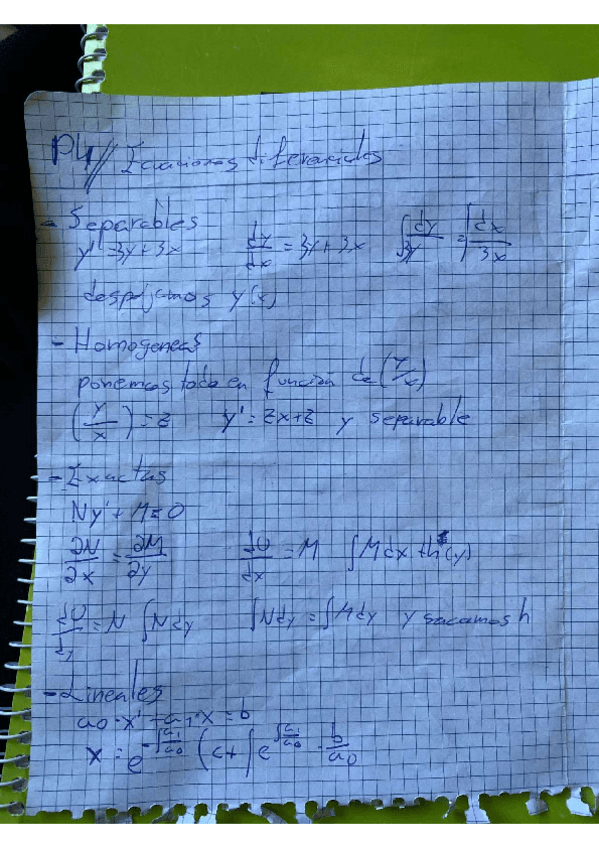 P4// Ecuaciones diferenciales
- Separables
y' = 3y+3x   dy/dx = 3y+3x   ∫dy/3y = ∫dx/3x
despejamos y(x)
- Homogeneas
ponemos todo en función de (y/x)
(y/x) = z   y' = zx+z y separable
- Exactas
Ny' + M = 0
∂N/∂x = ∂M/∂y   dU/dx = M   ∫Mdx + h(y)
dU/dy = N   ∫Ndy   ∫Ndy = ∫Mdy y sacamos h
- Lineales
a0·x' + a1·x = b
x = e^(-∫a1/a0) (c + ∫e^(∫a1/a0) · b/a0